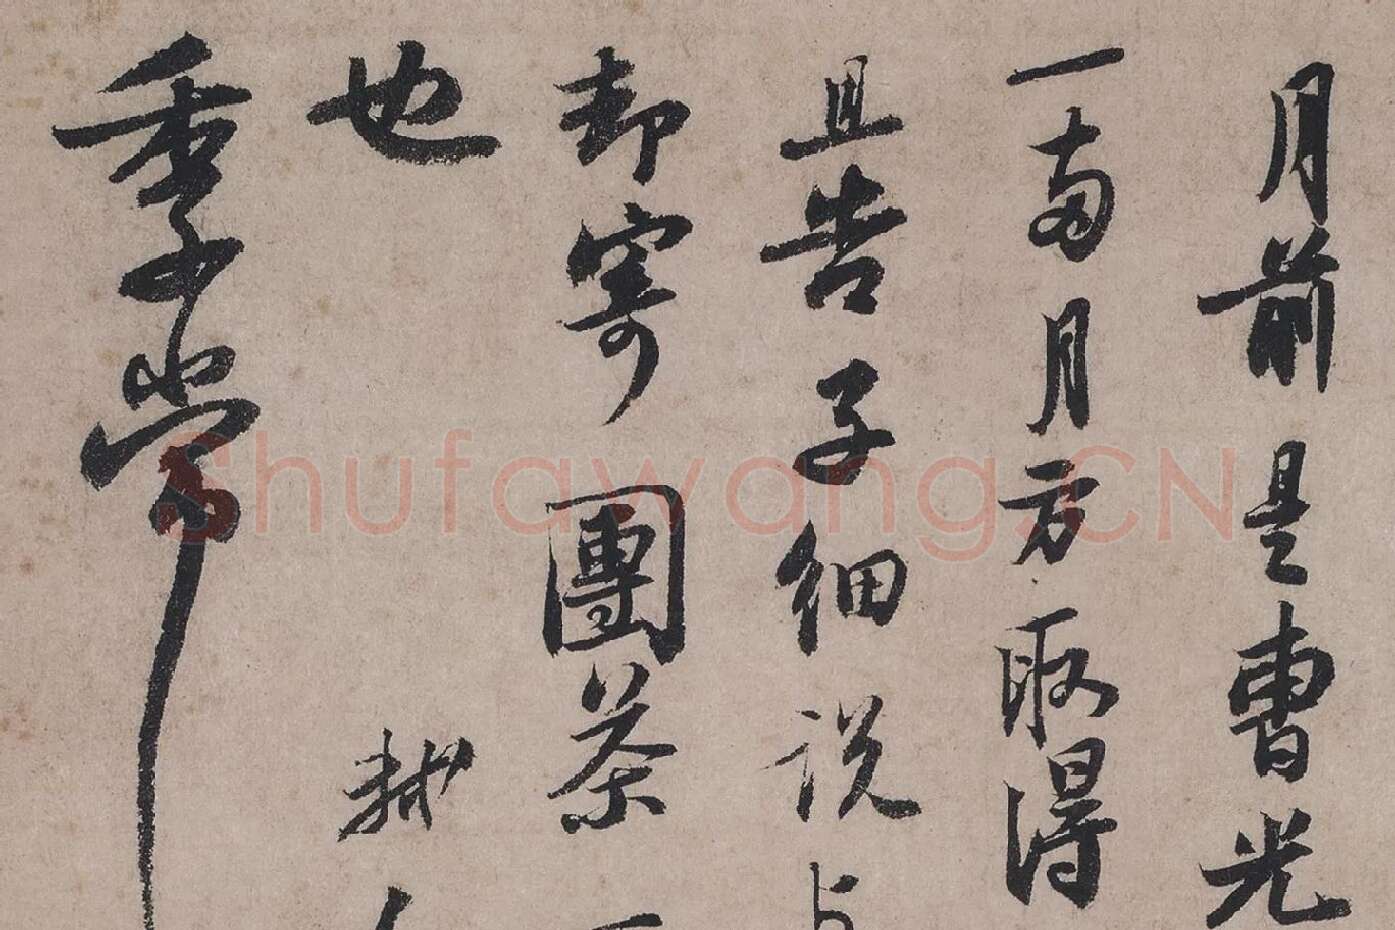 月前是曹光
一兩月方取得
且告子細說与
却寄團茶一
也 軾
季常
Shufawang.CN